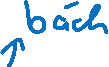 bách